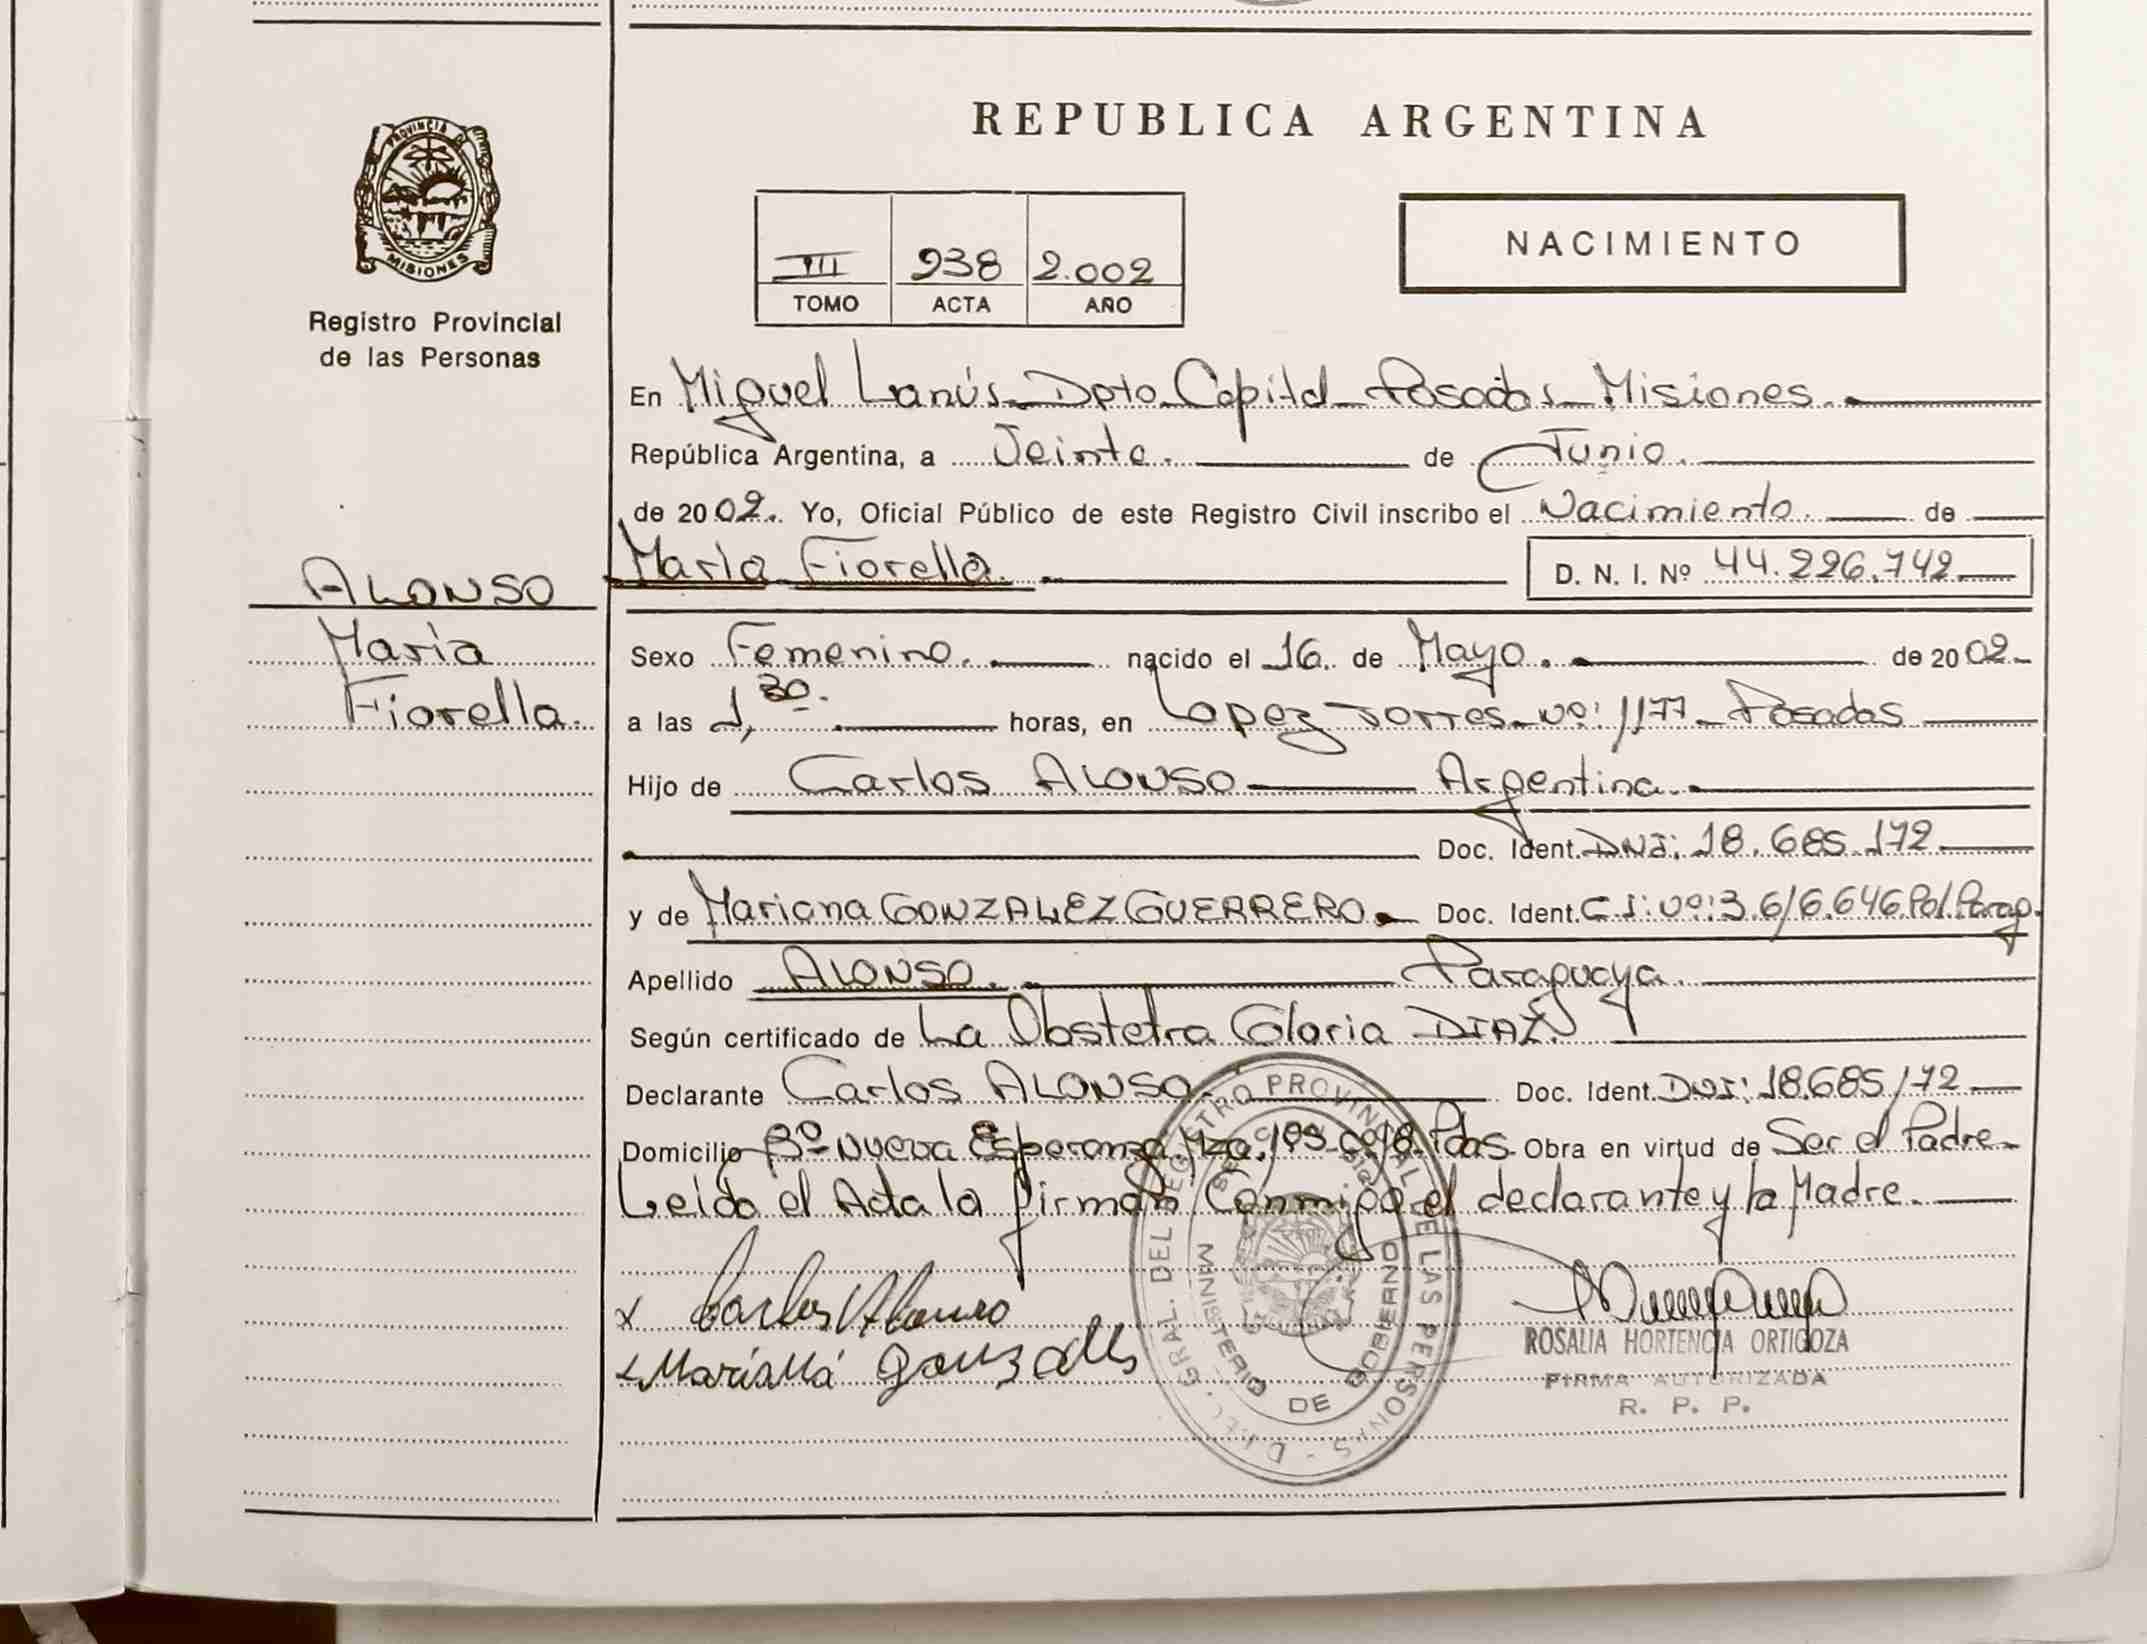 PROVINCIA DE
MISIONES
Registro Provincial
de las Personas
ALONSO
María
Fiorella.
REPUBLICA ARGENTINA
III 938 2.002
TOMO ACTA AÑO
NACIMIENTO
En Miguel Lanús Dpto Capital Posadas Misiones.
República Argentina, a Veinte. de Junio.
de 2002. Yo, Oficial Público de este Registro Civil inscribo el Nacimiento. de
María Fiorella. D. N. I. Nº 44.226.742
Sexo Femenino. nacido el 16. de Mayo. de 2002.
a las 1,30. horas, en Lopez Torres Nº: 1177 Posadas
Hijo de Carlos ALONSO Argentina.
Doc. Ident. DNI: 18.685.172
y de Mariana GONZALEZ GUERRERO. Doc. Ident. C I: Nº: 3.616.646 Pol. Parag.
Apellido ALONSO. Paraguaya.
Según certificado de La Obstetra Gloria DIAZ.
Declarante Carlos ALONSO. Doc. Ident. DNI: 18.685.172
Domicilio Bº Nueva Esperanza Mza. Pdas. Obra en virtud de Ser el Padre.
Leída el Acta la firman Conmigo el declarante y la Madre.
x Carlos Alonso
x Mariana Gonzalez
DIREC. GRAL. DEL REGISTRO PROVINCIAL DE LAS PERSONAS
MINISTERIO DE GOBIERNO
ROSALIA HORTENCIA ORTIGOZA
FIRMA AUTORIZADA
R. P. P.